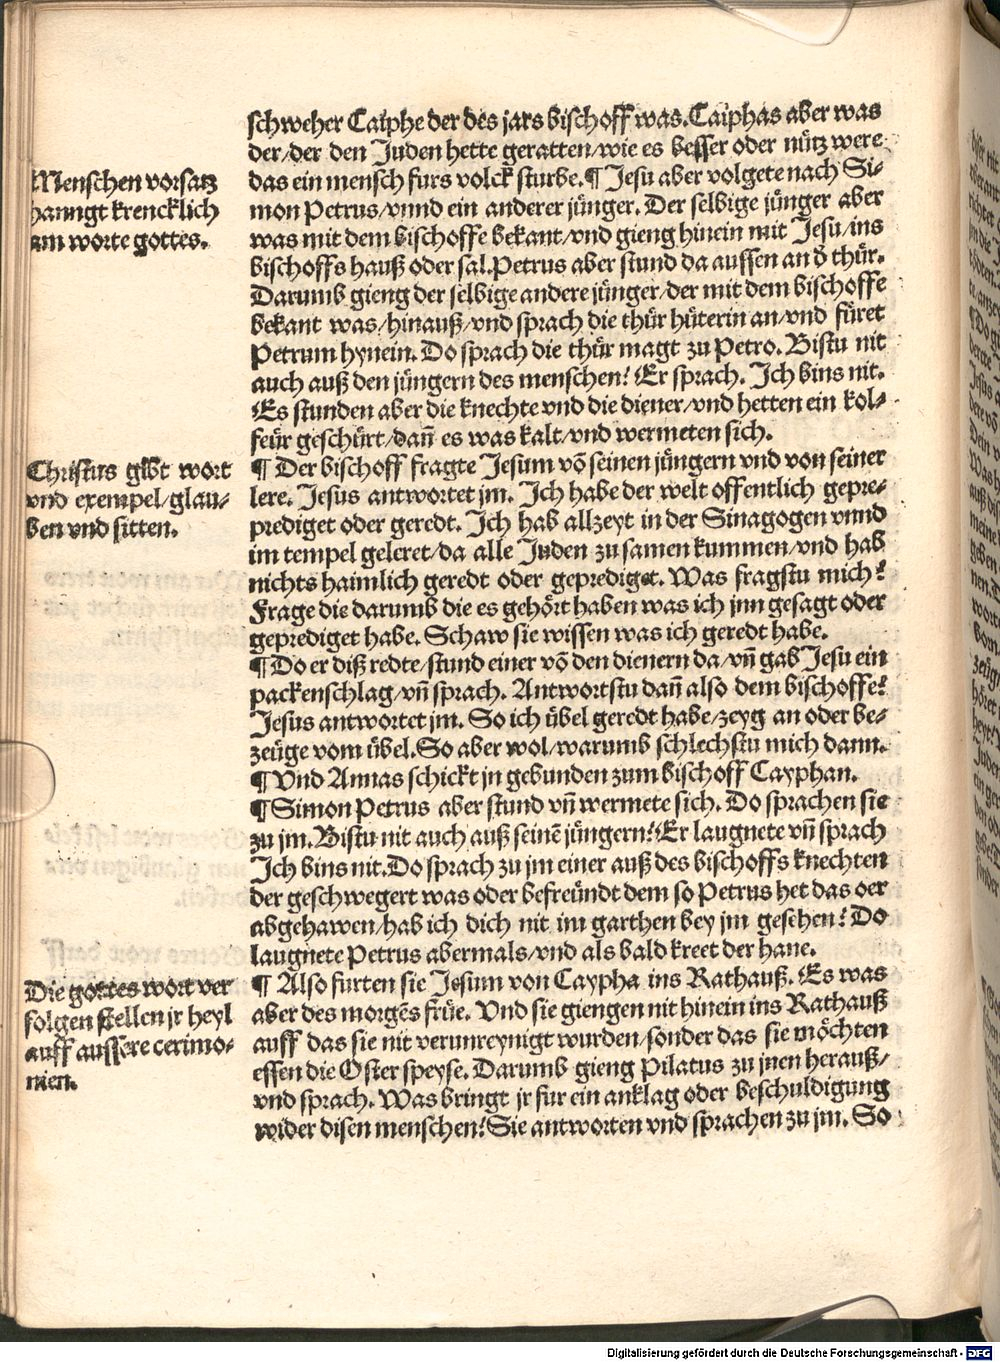 schweher Caiphe der des jars bischoff was. Caiphas aber was
der/der den Juden hette geratten/wie es besser oder nütz were
das ein mensch furs volck sturbe. ¶ Jesu aber volgete nach Si-
mon Petrus/vnnd ein anderer jünger. Der selbige jünger aber
was mit dem bischoffe bekant/vnd gieng hinein mit Jesu/ins
bischoffs hauß oder sal. Petrus aber stund da aussen an d̕ thür.
Darumb gieng der selbige andere jünger/der mit dem bischoffe
bekant was/hinauß/vnd sprach die thür hüterin an/vnd füret
Petrum hynein. Do sprach die thür magt zu Petro. Bistu nit
auch auß den jüngern des menschen? Er sprach. Ich bins nit.
Es stunden aber die knechte vnd die diener/vnd hetten ein kol-
feür geschürt/dañ es was kalt/vnd wermeten sich.
¶ Der bischoff fragte Jesum võ seinen jüngern vnd von seiner
lere. Jesus antwortet jm. Ich habe der welt offentlich gepre-
prediget oder geredt. Ich hab allzeyt in der Sinagogen vnnd
im tempel geleret/da alle Juden zu samen kummen/vnd hab
nichts haimlich geredt oder geprediget. Was fragstu mich?
Frage die darumb die es gehört haben was ich jnn gesagt oder
geprediget habe. Schaw sie wissen was ich geredt habe.
¶ Do er diß redte/stund einer võ den dienern da/vñ gab Jesu ein
packenschlag/vñ sprach. Antwortstu dañ also dem bischoffe?
Jesus antwortet jm. So ich übel geredt habe/zeyg an oder be-
zeüge vom übel. So aber wol/warumb schlechstu mich dann.
¶ Vnd Annas schickt jn gebunden zum bischoff Cayphan.
¶ Simon Petrus aber stund vñ wermete sich. Do sprachen sie
zu jm. Bistu nit auch auß seinẽ jüngern? Er laugnete vñ sprach
Ich bins nit. Do sprach zu jm einer auß des bischoffs knechten
der geschwegert was oder befreündt dem so Petrus het das oer
abgehawen/hab ich dich nit im garthen bey jm gesehen? Do
laugnete Petrus abermals/vnd als bald kreet der hane.
¶ Also furten sie Jesum von Caypha ins Rathauß. Es was
aber des morgẽs früe. Vnd sie giengen nit hinein ins Rathauß
auff das sie nit verunreynigt wurden/sonder das sie möchten
essen die Oster speyse. Darumb gieng Pilatus zu jnen herauß/
vnd sprach. Was bringt jr fur ein anklag oder beschuldigung
wider disen menschen? Sie antworten vnd sprachen zu jm. So
Menschen vorsatz
hanngt krencklich
am worte gottes.
Christus gibt wort
vnd exempel/glau-
ben vnd sitten.
Die gottes wort ver
folgen stellen jr heyl
auff aussere cerimo-
nien.
Digitalisierung gefördert durch die Deutsche Forschungsgemeinschaft - DFG